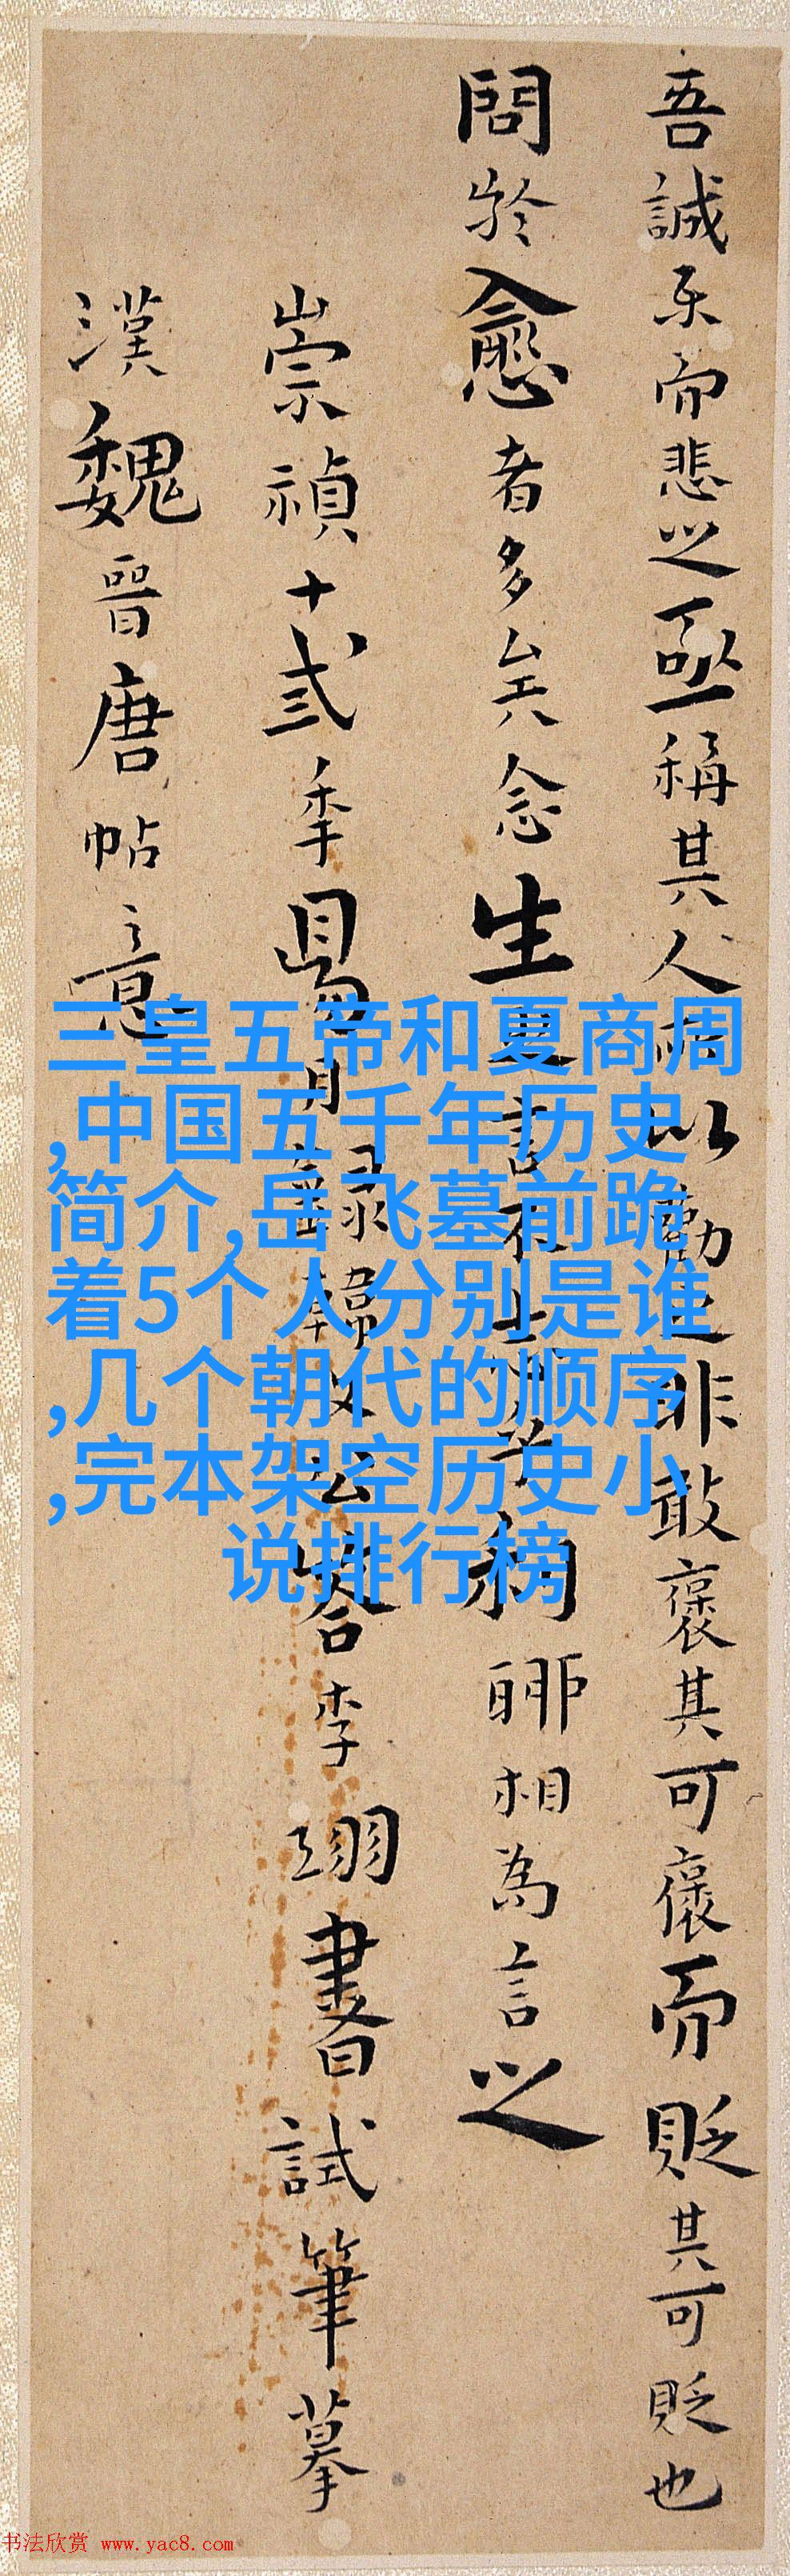 吾誠樂而悲之亟稱其人
以勸之非敢褒其可褒而貶其可貶也
問於愈者多矣念生之言不
相為言之
崇禎十弍季
月錄韓文公答李翊書試筆摹
漢魏晉唐帖意
三皇五帝和夏商周
,中国五千年历史
简介,岳飞墓前跪
着5个人分别是谁
,几个朝代的顺序
,完本架空历史小
说排行榜
书法欣赏 www.yac8.com